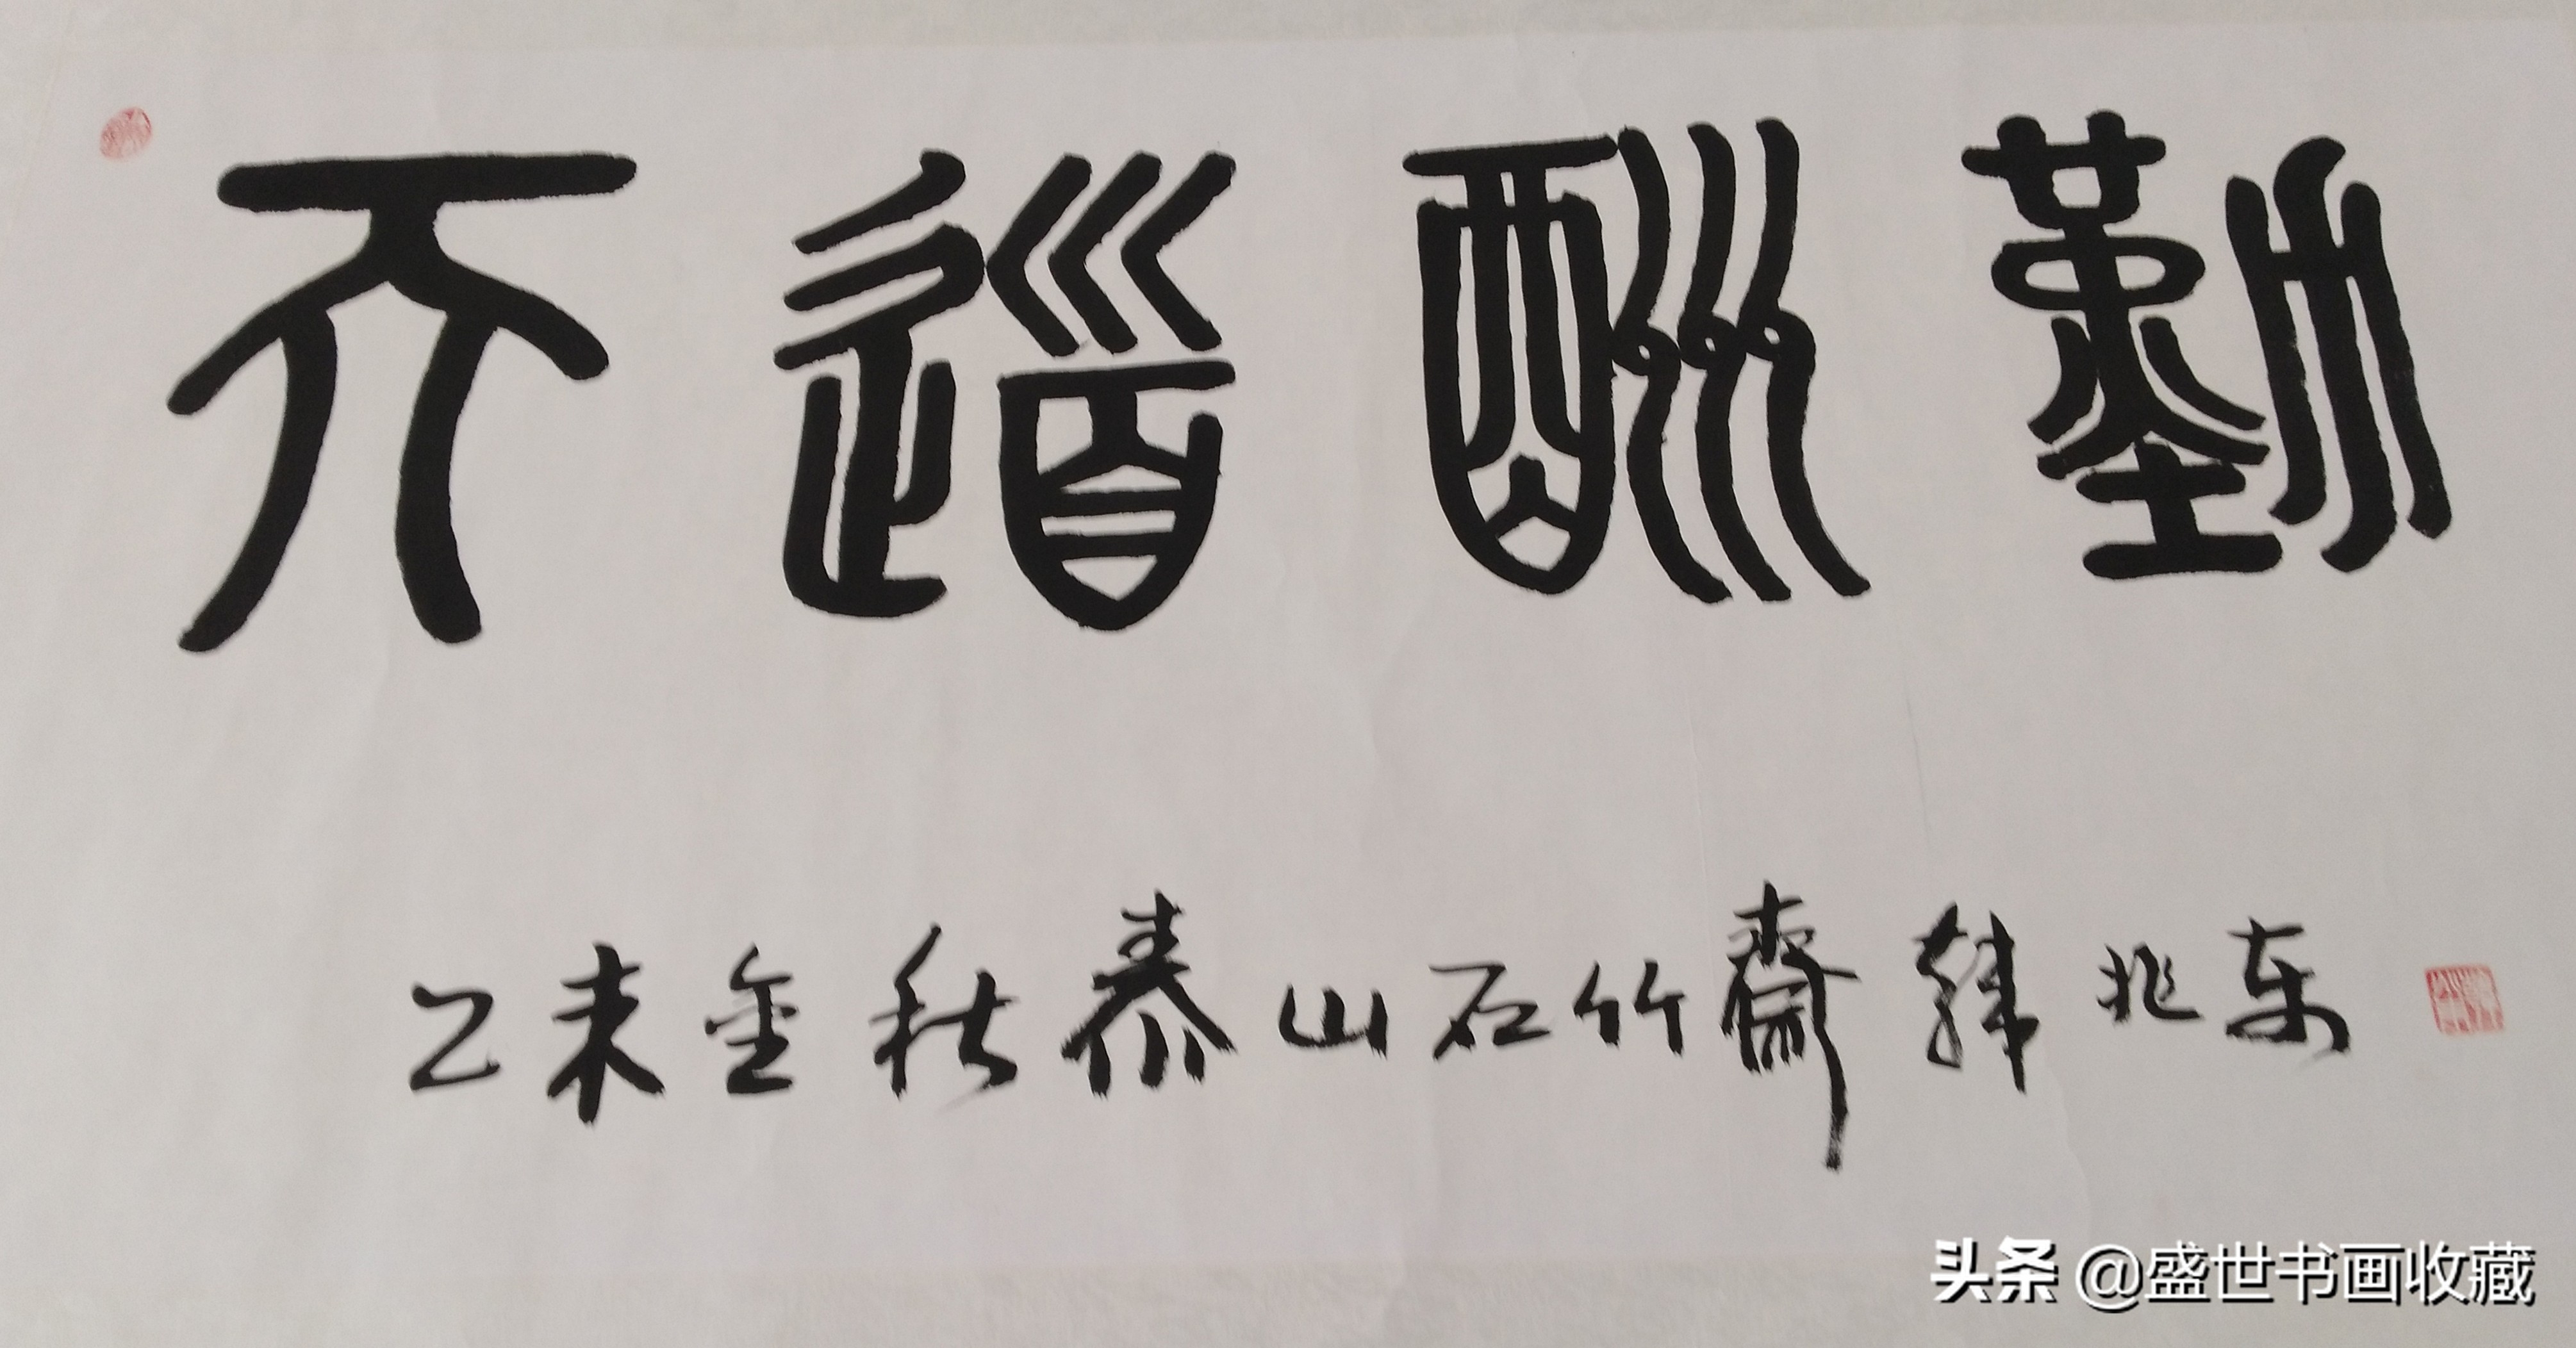 天道酬勤
乙未金秋泰山石竹斋韩兆东
头条 @盛世书画收藏